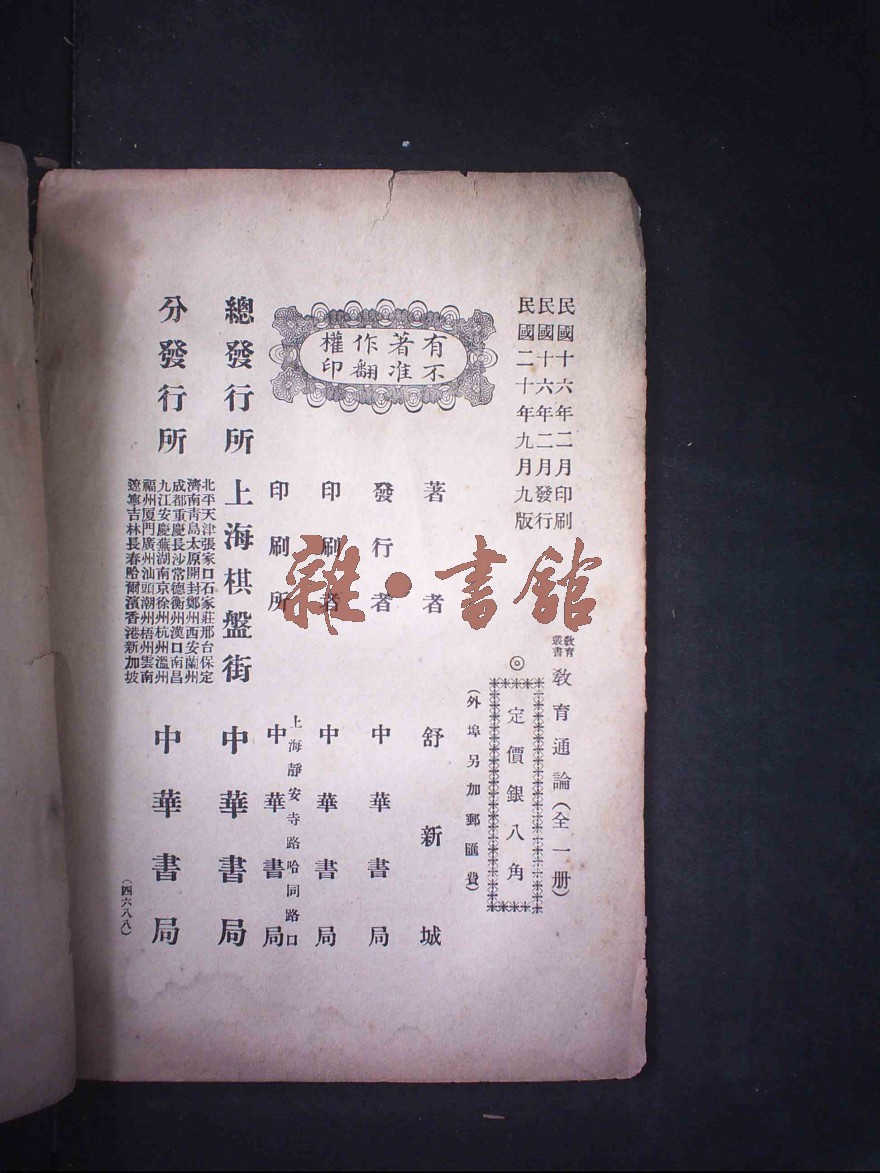 民國十六年二月印刷
民國十六年二月發行
民國二十年九月九版
教育
叢書
教育通論(全一册)
◎
定價銀八角
(外埠另加郵匯費)
有著作權
不准翻印
著者 舒新城
發行者 中華書局
印刷者 中華書局
上海靜安寺路哈同路口
印刷所 中華書局
總發行所 上海棋盤街 中華書局
分發行所
北平天津張家口石家莊邢台保定
濟南青島太原開封鄭州西安蘭州
成都重慶長沙常德衡州漢口南昌
九江安慶蕪湖南京徐州杭州溫州
福州厦門廣州汕頭潮州梧州雲南
遼寧吉林長春哈爾濱香港新加坡
中華書局
(四六八八)
雜·書館